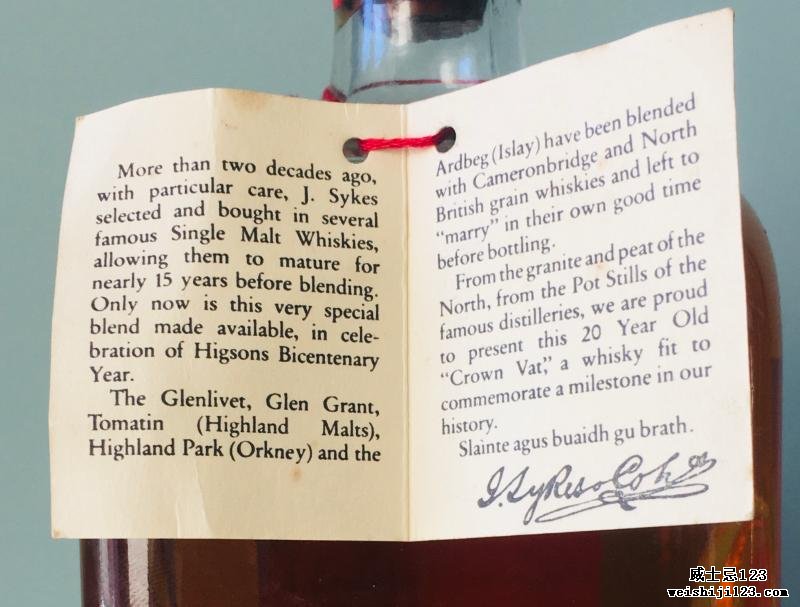 More than two decades ago,
with particular care, J. Sykes
selected and bought in several
famous Single Malt Whiskies,
allowing them to mature for
nearly 15 years before blending.
Only now is this very special
blend made available, in cele-
bration of Higsons Bicentenary
Year.
The Glenlivet, Glen Grant,
Tomatin (Highland Malts),
Highland Park (Orkney) and the
Ardbeg (Islay) have been blended
with Cameronbridge and North
British grain whiskies and left to
"marry" in their own good time
before bottling.
From the granite and peat of the
North, from the Pot Stills of the
famous distilleries, we are proud
to present this 20 Year Old
"Crown Vat," a whisky fit to
commemorate a milestone in our
history.
Slainte agus buaidh gu brath.
J. Sykes & Co
威士忌123
weishiji123.com